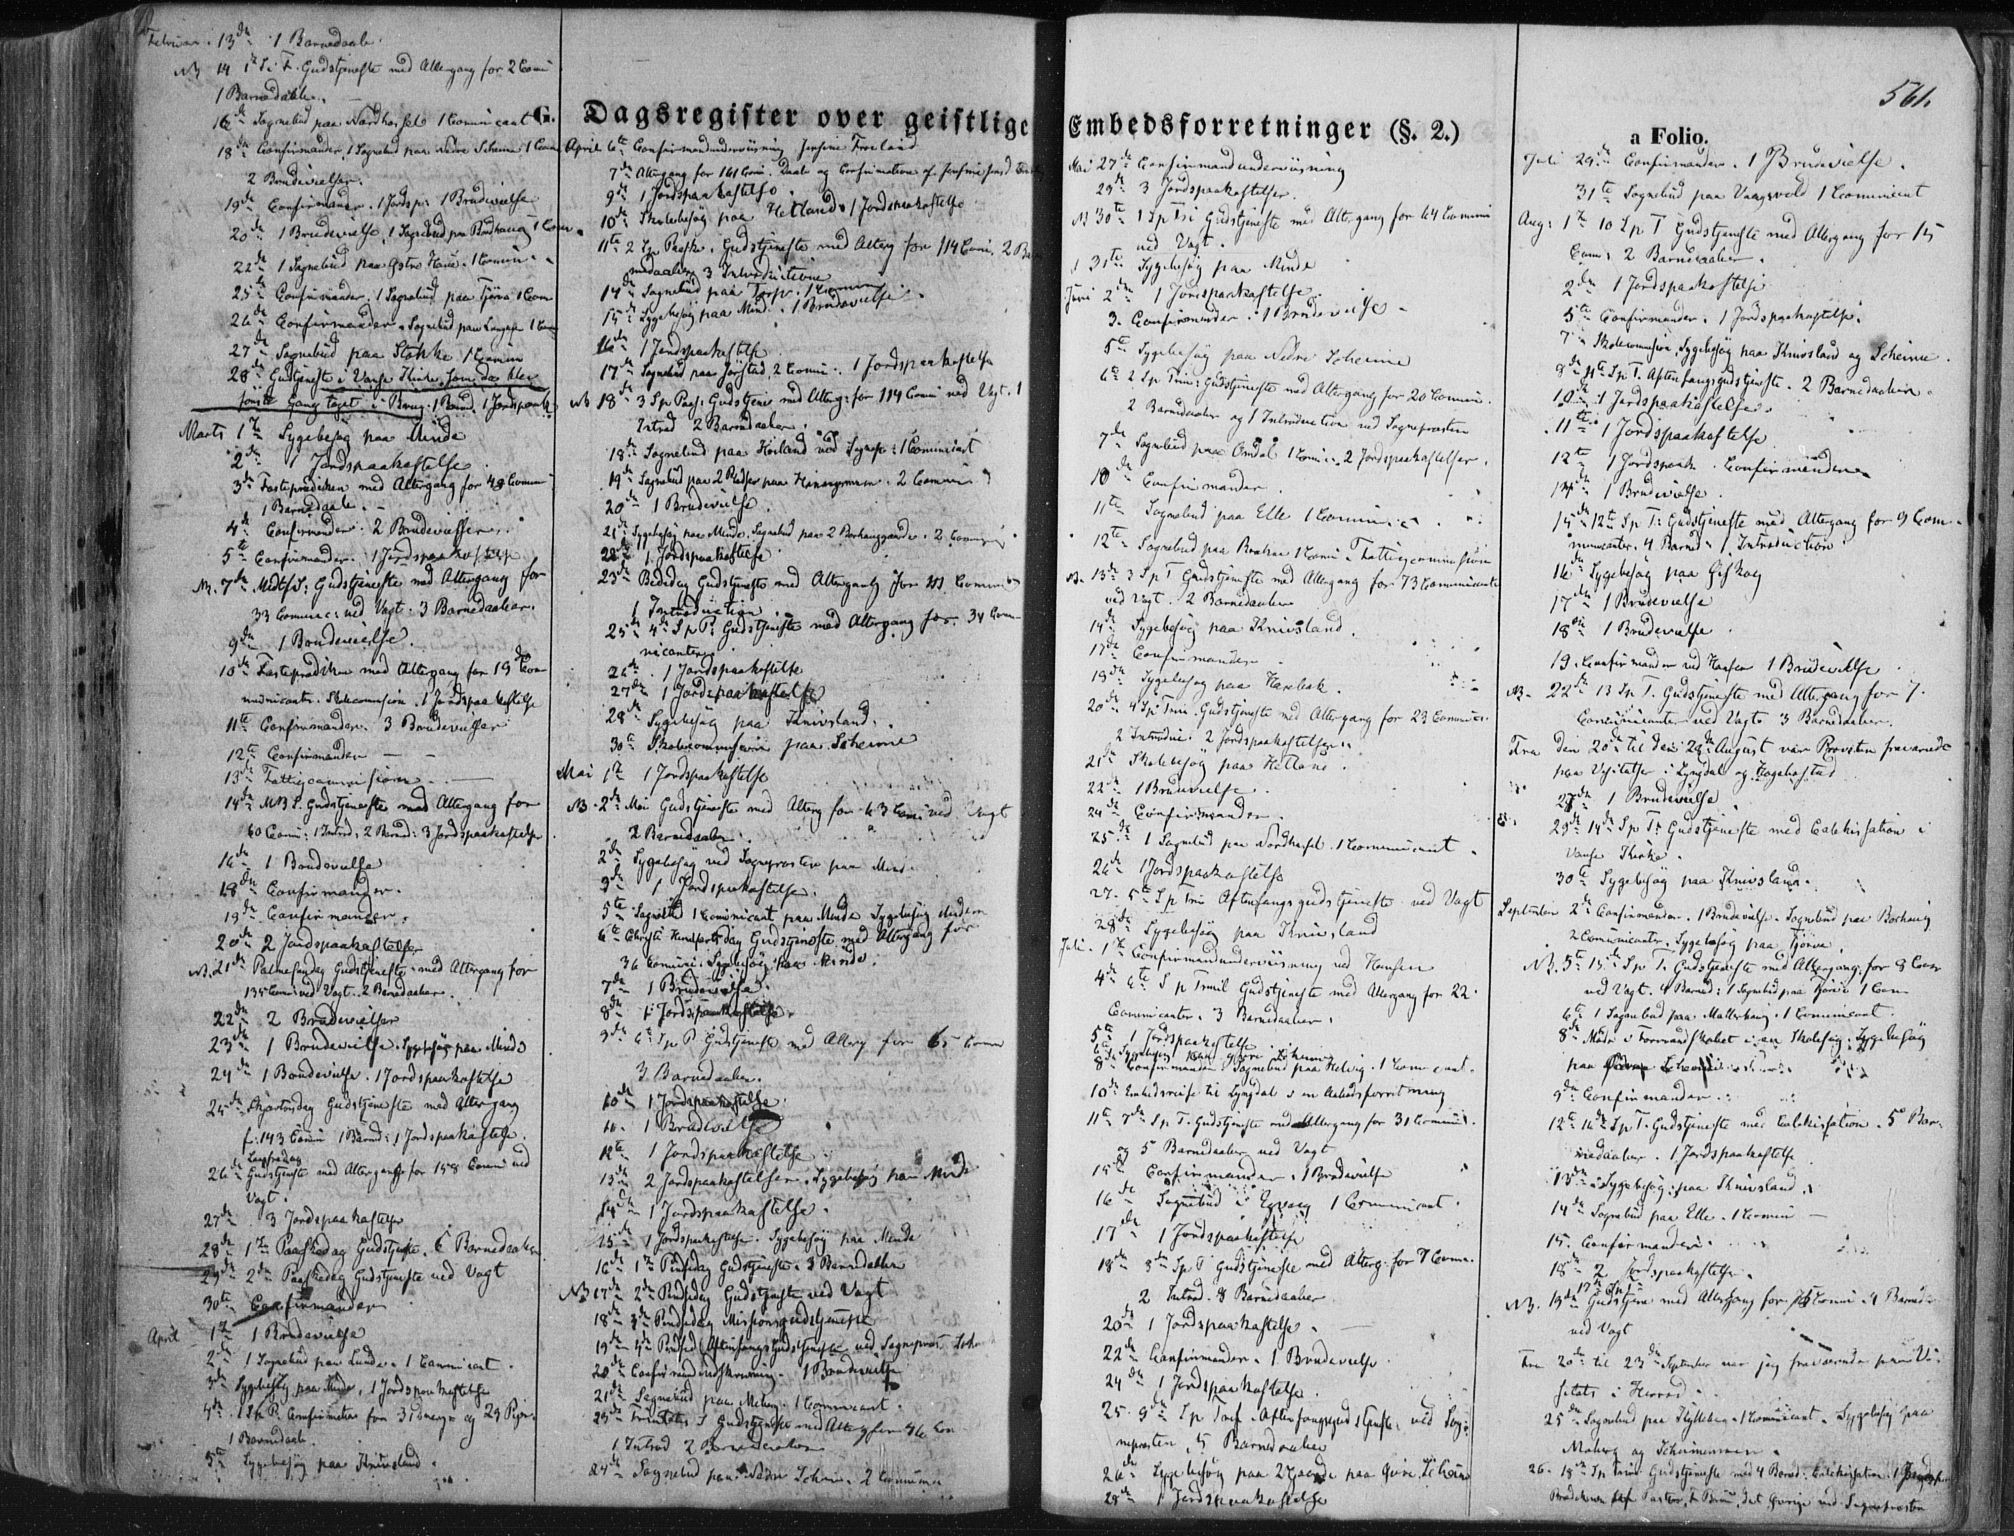 561.
G. Dagsregister over geistlige Embedsforretninger (§. 2.)
a Folio.
Februar. 13de 1 Barnedaab.
NB 14 Gudstjeneste med Altergang for 2 Comm
1 Barnedaab.
16de Sognebud paa Nordhassel 1 Communicant
18de Confirmander. 1 Sognebud paa Nedre Scheime 1 Com
2 Brudevielser.
19de Confirmander. 1 Jordsp: 1 Brudevielse
20de 1 Brudevielse, 1 Sognebud paa
22de 1 Sognebud paa Østre Hauie. 1 Comm
25de Confirmander. 1 Sognebud paa Tjørve 1 Com
26de Confirmander. Sognebud paa
27de Sognebud paa Stokke 1 Comm
28de Gudstjeneste i Vanse Kirke, som da blev
første Gang taget i Brug. 1 Jordspaak
Marts 1te Sygebesøg paa Minde
2den 1 Jordspaakastelse
3die Fasteprædiken med Altergang for 48 Comm
1 Barnedaab.
4de Confirmander. 2 Brudevielser.
5te Confirmander. 1 Jordspaakastelse
NB. 7de Midtf S: Gudstjeneste med Altergang for
33 Commu: ved Vagt. 3 Barnedaaber.
9de 1 Brudevielse.
10de Fasteprædiken med Altergang for 19 Com
municanter. Skolecommission. 1 Jordspaakastelse
11te Confirmander. 3 Brudevielser
12te Confirmander
13de Fattigcommission
14de Gudstjeneste med Altergang for
60 Comm: 1 Introd: 2 Barned: 3 Jordspaakastelser
16de 1 Brudevielse
18de Confirmander.
19de Confirmander.
20de 2 Jordspaakastelser
NB. 21de Palmesøndag Gudstjeneste med Altergang for
135 Comm ved Vagt. 2 Barnedaaber.
22de 2 Brudevielser
23de 1 Brudevielse. Sygebesøg paa Minde
24de 1 Brudevielse. 1 Jordspaakastelse
25de Skjærtorsdag Gudstjeneste med Altergang
f. 143 Comm 1 Barned: 1 Jordspaakastelse.
Langfredag
26de Gudstjeneste med Altergang for 158 Comm ved
Vagt.
27de 3 Jordspaakastelse
28de 1te Paaskedag Gudstjeneste. 6 Barnedaaber
29de 2den Paaskedag Gudstjeneste ved Vagt
30te Confirmander
April 1te 1 Brudevielse
2den 1 Sognebud paa Lunde. 1 Communicant.
3die Sygebesøg paa Minde, 1 Jordspaakastelse
4de 1 Sp P. Confirmation for 31 Drenge og 29 Piger.
1 Barnedaab.
5te Sygebesøg paa Knivsland.
April 6te Confirmandunderviisning
7de Altergang for 161 Comm. Daab og Confirmation af
9de 1 Jordspaakastelse.
10de Skolebesøg paa Hetland. 1 Jordspaakastelse
11te 2 Sp Paaske. Gudstjeneste med Alterg for 114 Comm. 2 Bar
nedaaber 3 Introductioner
14de Sognebud paa Torp. 1 Comm
15de Sygebesøg paa Mind. 1 Brudevielse.
16de 1 Jordspaakastelse
17de Sognebud paa Jørstad, 2 Comm. 1 Jordspaakastelse
NB 18de 3 Sp Pas: Gudstjenes med Alterg: for 114 Comm ved Vagt. 1
Introd 2 Barnedaaber.
18de Sognebud paa Heiland ved Sognepr: 1 Communicant
19de Sognebud paa 2 Pladser paa 2 Comm
20de 1 Brudevielse.
21de Sygebesøg paa Minde. Sognebud paa 2 2 Comm
22de 1 Jordspaakastelse
23de Bededag Gudstjeneste med Altergang for Commun
1 Introduction.
25de 4de Sp P. Gudstjeneste med Altergang for 34 Com
municanter.
26de 1 Jordspaakastelse
27de 1 Jordspaakastelse
28de Sygebesøg paa Knivsland.
30te Skolecommission paa Scheime
Mai 1te 1 Jordspaakastelse
NB. 2den Mai Gudstjeneste med Alterg for 43 Com ved Vagt
2 Barnedaaber.
2den Sygebesøg ved Sognepræsten paa Mind.
3die 1 Jordspaakastelse.
5te Sognebud 1 Communicant paa Minde Sygebesøg
6te Christi Himmelfartsdag Gudstjeneste med Altergang for
36 Comm. Sygebesøg paa Minde.
7de 1 Brudevielse.
8de 1 Jordspaakastelse.
9de 6te Sp P Gudstjeneste med Alterg for 65 Comm
3 Barnedaaber.
10de 1 Jordspaakastelse.
1 Brudevielse
12te 1 Jordspaakastelse
13de 2 Jordspaakastelser. Sygebesøg paa Minde
14de 1 Jordspaakastelse.
15de 1 Jordspaakastelse. Sygebesøg paa Minde
16de 1te Pindsedag Gudstjeneste. 3 Barnedaaber
NB 17de 2den Pindsedag Gudstjeneste ved Vagt
18de 3die Pindsedag Missionsgudstjeneste
19de 4de Pindsed Aftensangsgudstjeneste ved Sognepræst
20de Confirmandindskrivning. 1 Brudevielse
21de Sognebud paa Meberg. 1 Communicant.
23de Trinitatis S Gudstjeneste med Alterg for 46 Com
1 Introd 2 Barnedaaber
24de Sognebud paa Nedre Scheime. 2 Communic
Mai 27de Confirmandunderviisning
29de 3 Jordspaakastelser.
NB 30te 1 Sp Tri Gudstjeneste med Altergang for 64 Commun
ved Vagt.
31te Sygebesøg paa Minde
Juni 2den 1 Jordspaakastelse.
3. Confirmander. 1 Brudevielse
5te Sygebesøg paa Nedre Scheime
6te 2 Sp Trin: Gudstjeneste med Altergang for 20 Commun.
2 Barnedaaber og 1 Introduction ved Sognepræsten
7de Sognebud paa Omdal 1 Comm. 2 Jordspaakastelser.
10de Confirmander.
11te Sognebud paa Elle 1 Commun
12te Sognebud paa 1 Comm Fattigcommission
NB. 13de 3 Sp T Gudstjeneste med Altergang for 73 Communicanter
ved Vagt. 2 Barnedaaber
14de Sygebesøg paa Knivsland.
17de Confirmander
19de Sygebesøg paa Harebak.
20de 4 Sp Trin. Gudstjeneste med Altergang for 23 Commun.
2 Introduc. 2 Jordspaakastelser.
21de Skolebesøg paa Hetland.
22de 1 Brudevielse.
24de Confirmander.
25de 1 Sognebud paa Nordhassel. 1 Communicant.
26de 1 Jordspaakastelse
27. 5te Sp Trin Aftensangsgudstjeneste ved Vagt
28de Sygebesøg paa Knivsland
Juli. 1te Confirmandunderviisning ved Hansen
4de 6te S p Gudstjeneste med Altergang for 22
Communicanter. 3 Barnedaaber.
5te 1 Jordspaakastelse
6te Sygebesøg paa Øvre Scheime
8de Confirmander. Sognebud paa Helvig. 1 Communicant.
10de Embedsreise til Lyngdal
11te 7de Sp T. Gudstjeneste med Altergang for 31 Commun.
og 5 Barnedaaber ved Vagt
15de Confirmander. 1 Brudevielse
16de Sognebud i 1 Communicant.
17de 1 Jordspaakastelse
18de 8de Sp T Gudstjeneste med Alterg. for 7 Comm.
2 Introd. 8 Barnedaaber
20de 1 Jordspaakastelse.
22de Confirmander. 1 Brudevielse.
24de 1 Jordspaakastelse.
25. 9de Sp Tref. Aftensangsgudstjeneste ved Sog-
nepræsten, 5 Barnedaaber
26de Sygebesøg paa 2 Gaarde paa Øvre Scheime
28de 1 Jordspaakastelse
Juli 29de Confirmander. 1 Brudevielse.
31te Sognebud paa Vaagsvold 1 Communicant
Aug: 1te 10 Sp T Gudstjeneste med Altergang for 15
Comm: 2 Barnedaaber.
2den 1 Jordspaakastelse
5te Confirmander. 1 Jordspaakastelse.
7de Skolecommission, Sygebesøg paa Knivsland og Scheime.
8de 11te Sp T. Aftensangsgudstjeneste. 2 Barnedaaber.
10de 1 Jordspaakastelse.
11te 1 Jordspaakastelse
12te 1 Jordspaak. Confirmander
14de 1 Brudevielse.
15de 12te Sp T: Gudstjeneste med Altergang for 9 Com-
municanter. 4 Barned: 1 Introduction
16de Sygebesøg paa
17de 1 Brudevielse
18de 1 Brudevielse.
19. Confirmander ved Hansen 1 Brudevielse
NB. 22de 13 Sp T. Gudstjeneste med Altergang for 7.
Communicanter ved Vagt. 3 Barnedaaber.
Fra den 20de til den 28de August var Provsten fraværende
paa Visitatser i Lyngdal og Hægebostad
27de 1 Brudevielse
29de 14de Sp T: Gudstjeneste med Catekisation i
Vanse Kirke.
30te Sygebesøg paa Knivsland.
September 2den Confirmander. 1 Brudevielse. Sognebud paa
2 Communicanter. Sygebesøg paa Tjørve.
NB. 5te 15de Sp T. Gudstjeneste med Altergang for 8 Com
ved Vagt. 4 Barned: 1 Sognebud paa Tjørve 1 Com
6te 1 Sognebud paa 1 Communicant.
8de Møde i Formandskabet i en Skolesag. Sygebesøg
paa
9de Confirmander.
12te 16de Sp T. Gudstjeneste med Catekisation. 5 Bar-
nedaaber. 1 Jordspaakastelse
13de Sygebesøg paa Knivsland.
14de Sognebud paa Elle. 1 Comm
15. Confirmander.
18de 2 Jordspaakastelse.
NB. 19de Gudstjene med Altergang for 15 Comm. 4 Barned-
ved Vagt
Fra 20de til 23de September var jeg fraværende paa Vi-
sitats i Herred.
25de Sognebud paa 1 Communicant. Sygebesøg paa
Meberg og
26. 18de Sp Trin. Gudstjeneste med 4 Barned. Catekisation. 1 Jordsp
Prædikenen Pastor det Øvrige ved Sognepræsten